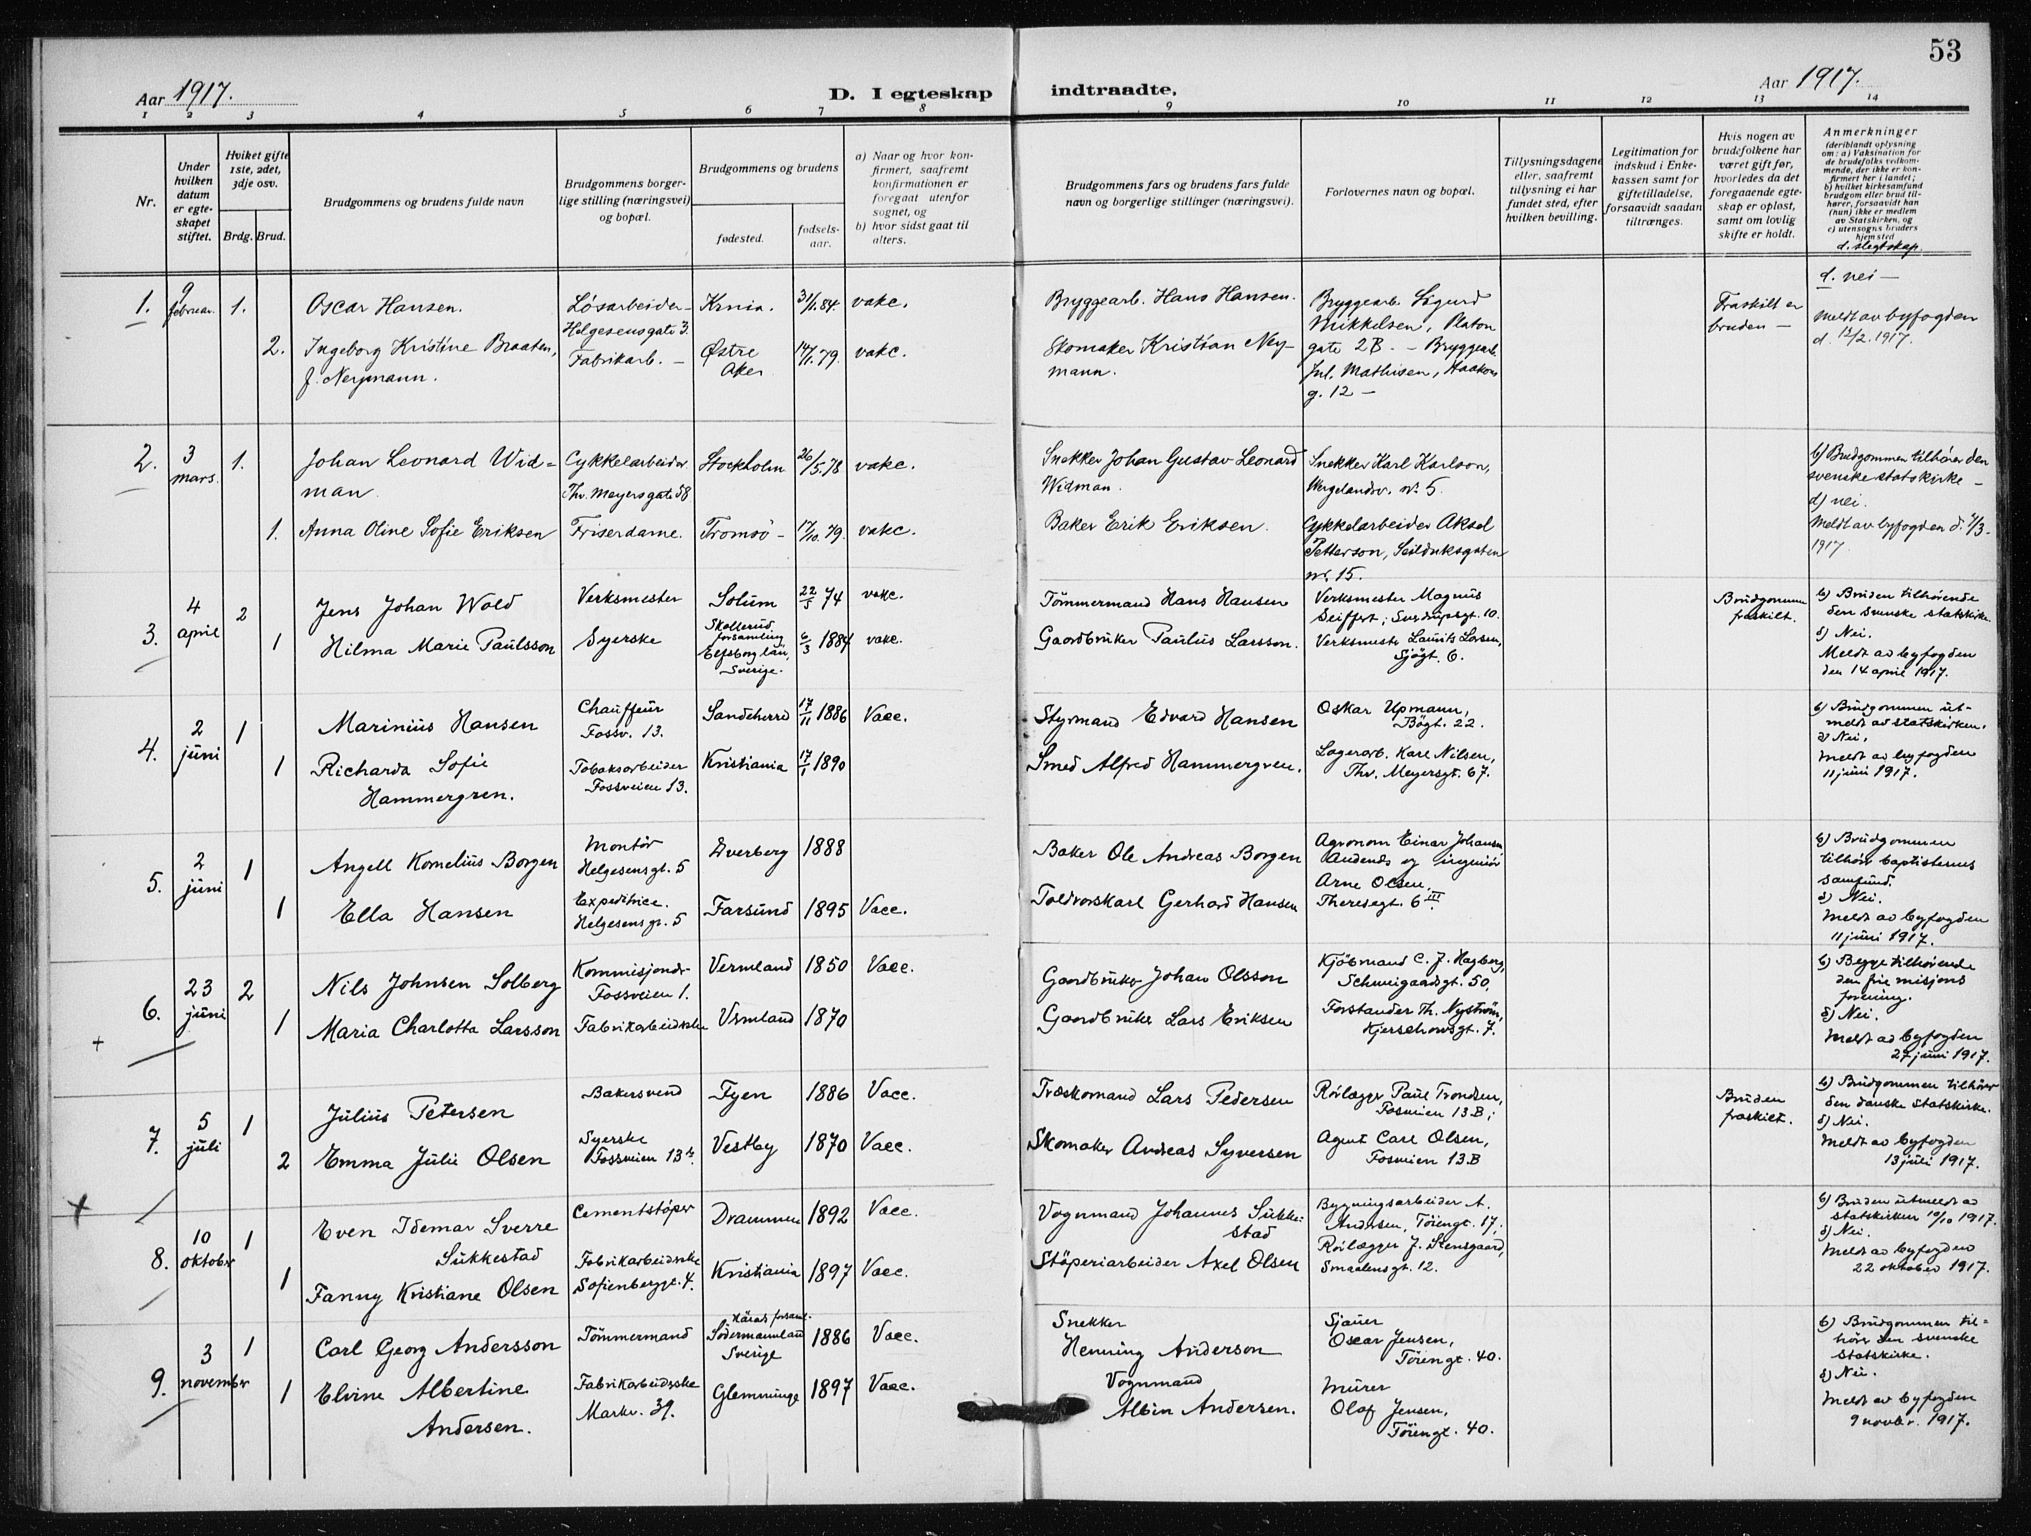 53
Aar 1917.
D. I egteskap indtraadte.
Aar 1917.
1 2 3 4 5 6 7 8 9 10 11 12 13 14
Nr.
Under hvilken datum er egteskapet stiftet.
Hviket gifte 1ste, 2det, 3dje osv.
Brdg. Brud.
Brudgommens og brudens fulde navn
Brudgommens borgerlige stilling (næringsvei) og bopæl.
Brudgommens og brudens
fødested.
fødselsaar.
a) Naar og hvor konfirmert, saafremt konfirmationen er foregaat utenfor sognet, og
b) hvor sidst gaat til alters.
Brudgommens fars og brudens fars fulde navn og borgerlige stillinger (næringsvei).
Forlovernes navn og bopæl.
Tillysningsdagene eller, saafremt tillysning ei har fundet sted, efter hvilken bevilling.
Legitimation for indskud i Enkekassen samt for giftetilladelse, forsaavidt saadan tiltrænges.
Hvis nogen av brudefolkene har været gift før, hvorledes da det foregaaende egteskap er opløst, samt om lovlig skifte er holdt.
Anmerkninger
(deriblandt oplysning om: a) Vaksination for de brudefolks vedkommende, der ikke er konfirmert her i landet; b) hvilket kirkesamfund brudgom eller brud tilhører, forsaavidt han (hun) ikke er medlem av Statskirken, og c) utensogns bruders hjemsted
d. slegtskap.
1. 9 februar. 1.
Oscar Hansen.
Løsarbeider
Helgesensgate 3.
Krnia. 31/1.84. vakc.
Bryggearb. Hans Hansen.
Bryggearb. Sigurd
Mikkelsen, Platon
gate 2B. - Bryggearb.
Jul. Mathisen, Haakons
g. 12 -
Fraskilt er
bruden -
d. nei -
Meldt av byfogden
d. 12/2. 1917.
2. Ingeborg Kristine Braaten,
f. Neymann.
Fabrikarb. -
Østre
Aker
14/1.79. vakc.
Skomaker Kristian Ney-
mann.
2. 3 mars. 1.
Johan Leonard Wid=
man.
Cykkelarbeider
Thv. Meyersgate 58
Stockholm 26/5.78 vakc.
Snekker Johan Gustav Leonard
Widman.
Snekker Karl Karlson,
Wergelandsv. nr. 5.
b) Brudgommen tilhører den
svenske statskirke -
d) nei.
Meldt av byfogden d. 7/3.
1917.
1. Anna Oline Sofie Eriksen
Friserdame. Tromsö - 17/10.79. vakc.
Baker Erik Eriksen.
Cykkelarbeider Aksel
Petterson, Seilduksgaten
nr. 15.
3. 4 april 2
Jens Johan Wold
Verksmester Solum 22/5 74 vakc.
Tömmermand Hans Hansen
Verksmester Magnus
Seiffert, Sverdrupsgt. 10.
Brudgommen
fraskilt.
b) Bruden tilhørende
den svenske statskirke.
d) Nei.
Meldt av byfogden
den 14 april 1917.
1 Hilma Marie Paulsson
Syerske
Skallerud
forsamling
Elfsborg län,
Sverige.
6/3 1884 vakc.
Gaardbruker Paulus Larsson.
Verksmester Laurits Larsen,
Sjögt. 6.
4. 2 juni 1
Marinius Hansen
Chauffeur
Fossv. 13.
Sandeherred 17/11 1886 Vacc.
Styrmand Edvard Hansen
Oskar Upmann,
Bögt. 22.
b) Brudgommen ut-
meldt av statskirken.
d) Nei.
Meldt av byfogden
11 juni 1917.
1 Richarda Sofie
Hammergren.
Tobaksarbeider
Fossveien 13.
Kristiania 17/1 1890
Smed Alfred Hammergren.
Lagerarb. Karl Nilsen,
Thv. Meyersgt. 67.
5. 2 juni 1
Angell Kornelius Borgen
Montör
Helgesensgt. 5
Dverberg 1888
Baker Ole Andreas Borgen
Agronom Einar Johansen
Andenes og ingeniör
Arne Olsen,
Theresegt. 6 III.
b) Brudgommen
tilhörer baptisternes
samfund.
d) Nei.
Meldt av byfogden
11 juni 1917.
1 Ella Hansen
Expeditrice.
Helgesensgt. 5
Farsund 1895 Vacc.
Toldvorskarl Gerhard Hansen
6. 23 juni 2
Nils Johnsen Solberg
Kommisjonær
Fossveien 1.
Vermland 1850 Vacc.
Gaardbruker Johan Olsson
Kjöbmand C. J. Hagberg,
Schweigaardsgt. 50,
b) Begge tilhørende
den frie misjons
forening.
d) Nei.
Meldt av byfogden
27 juni 1917.
+ 1 Maria Charlotta Larsson
Fabrikarbeiderske Vermland 1870
Gaardbruker Lars Eriksen
Forstander Th. Nyström,
Kjerschowsgt. 7.
7. 5 juli 1
Julius Petersen
Bakersvend Fyen 1886 Vacc.
Træskomand Lars Pedersen
Rörlægger Paul Trondsen,
Fossveien 13B;
Bruden
fraskilt.
b) Brudgommen tilhører
den danske statskirke.
d) Nei.
Meldt av byfogden
13 juli 1917.
2 Emma Julie Olsen
Syerske
Fossveien 13b.
Vestby 1870 Vacc.
Skomaker Andreas Syversen
Agent Carl Olsen,
Fossveien 13B
+
8. 10 oktober 1
Even Idemar Sverre
Sukkestad
Cementstöper Drammen 1892 Vacc.
Vognmand Johannes Sukke-
stad
Bygningsarbeider A.
Andersen, Töiengt. 17.
b) Bruden utmeldt av
statskirken 10/10 1917.
d) Nei.
Meldt av byfogden
22 oktober 1917.
1 Fanny Kristiane Olsen
Fabrikarbeiderske
Sofienberggt. 4.
Kristiania 1897 Vacc.
Stöperiarbeider Axel Olsen
Rörlægger J. Stensgaard,
Smaalensgt. 12.
9. 3 november 1
Carl Georg Andersson
Tömmermand
Södermannland
Sverige
1886 Vacc.
Snekker
Henning Anderson
Sjauer
Oscar Jensen,
Töiengt. 40.
b) Brudgommen til-
hörer den svenske
statskirke.
d) Nei.
Meldt av byfogden
9 novbr. 1917.
1 Elvine Albertine
Andersen.
Fabrikarbeiderske
Markv. 39.
Glemminge 1897 Vacc.
Vognmand
Albin Andersen.
Murer
Olaf Jensen,
Töiengt. 40.